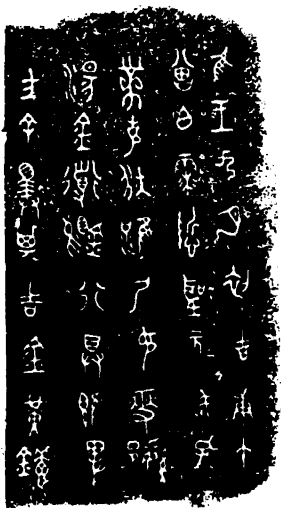 隹王九月初吉庚午
曾白霂哲聖元=武=孔
黹克狄淮尸印燮繁
湯金道錫行具既卑
方余擇其吉金黃鏞